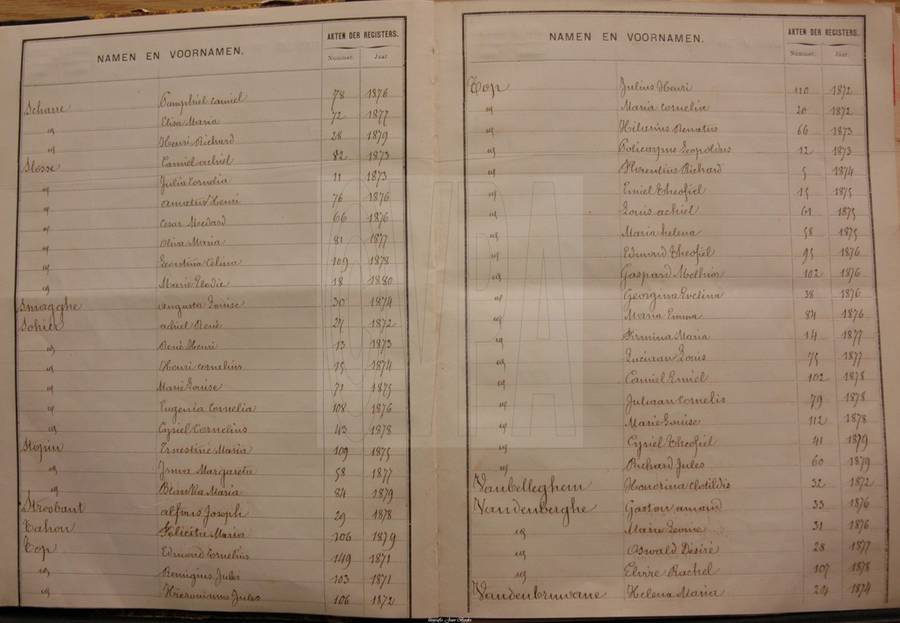 NAMEN EN VOORNAMEN. AKTEN DER REGISTERS.
Nummer. Jaar.
Scharre Pamphiel Camiel 78 1876
id Elisa Maria 72 1877
id Henri Richard 28 1879
Slosse Camiel achiel 82 1873
id Julia Cornelia 11 1873
id Amatus Henri 76 1876
id Cesar Medard 66 1876
id Oliva Maria 81 1877
id Leontina Celina 109 1878
id Marie Elodie 18 1880
Smagghe augusta Louise 30 1874
Sohier achiel René 27 1872
id René Henri 13 1873
id Henri Cornelius 15 1874
id Marie Louise 71 1875
id Eugenia Cornelia 108 1876
id Cyriel Cornelius 43 1878
Stopin Ernestine Maria 109 1875
id Irma Margareta 58 1877
id Blanka Maria 84 1879
Stroobant alfons Joseph 29 1878
Tahon Felicita Maria 106 1879
Top Edmond Cornelius 149 1871
id Remigius Jules 103 1871
id Hieronimus Jules 106 1872
NAMEN EN VOORNAMEN. AKTEN DER REGISTERS.
Nummer. Jaar.
Top Julius Henri 110 1872
id Maria Cornelia 20 1872
id Hilarius Renatus 66 1873
id Policarpus Leopoldus 12 1873
id Florentius Richard 5 1874
id Emiel Theofiel 15 1875
id Louis achiel 61 1875
id Maria helena 58 1875
id Edmond Theofiel 95 1876
id Gaspard 102 1876
id Georgina Evelina 38 1876
id Maria Emma 84 1876
id Firmina Maria 14 1877
id Lucien Louis 75 1877
id Camiel Emiel 102 1878
id Juliaan Cornelis 79 1878
id Marie Louise 112 1878
id Cyriel Theofiel 41 1879
id Richard Jules 60 1879
Vanbelleghem Honorina Clotildis 32 1872
Vandenberghe Gaston amand 33 1876
id Marie Leonie 31 1876
id Oswald Désiré 28 1877
id Elvire Rachel 107 1878
Vandenbruwane Helena Maria 24 1874